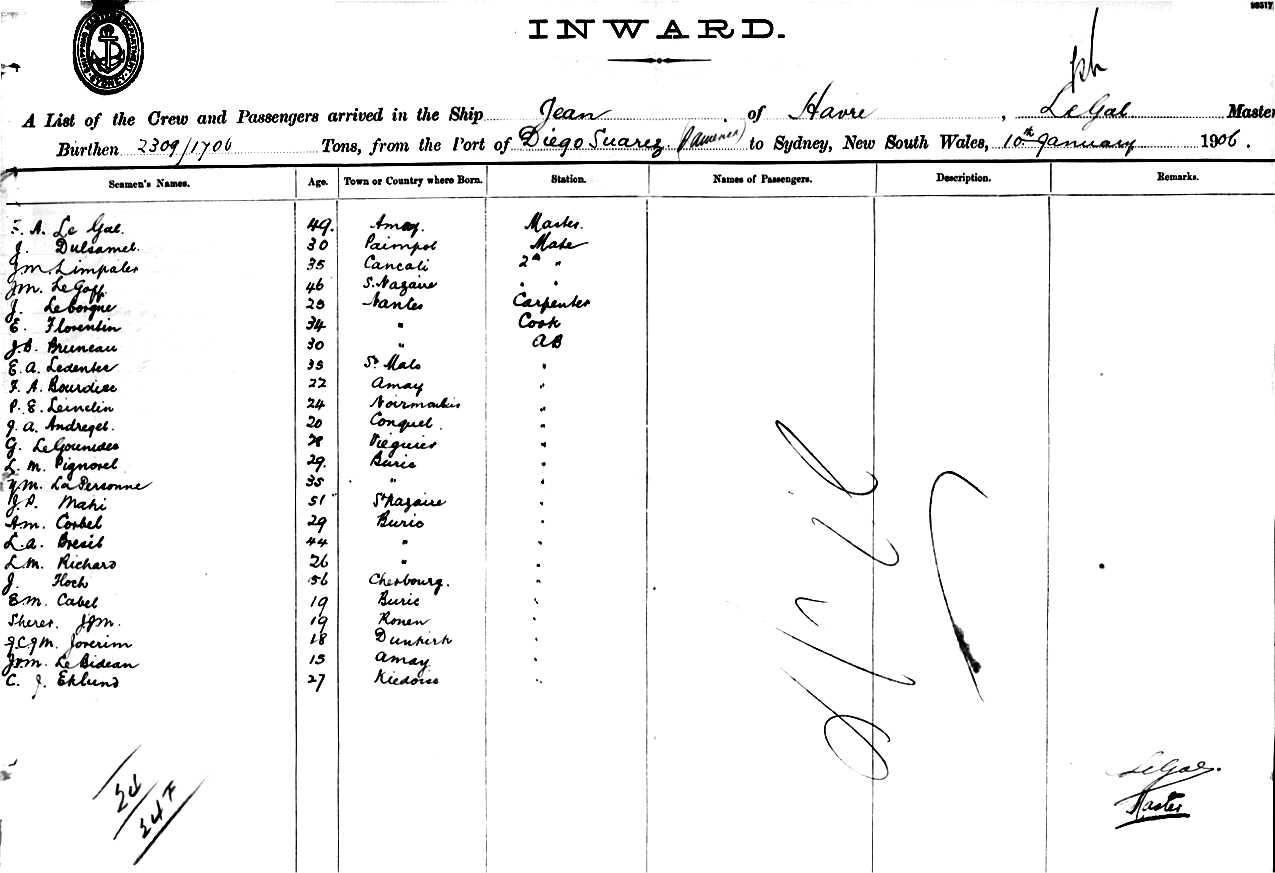 98317
SHIPPING MASTER'S DEPARTMENT SYDNEY
INWARD.
A List of the Crew and Passengers arrived in the Ship Jean of Havre, Le Gal Master
Burthen 2309/1706 Tons, from the Port of Diego Suarez to Sydney, New South Wales, 10th January 1906.
Seamen's Names. Age. Town or Country where Born. Station. Names of Passengers. Description. Remarks.
F. A. Le Gal. 49. Amay. Master.
J. Dulsamel. 30 Paimpol Mate
J.M. Limpaler 35 Cancali 2nd "
J.M. Le Goff. 46 S. Nazaire " "
J. Leborgne 25 Nantes Carpenter
E. Florentin 34 " Cook
J.B. Bruneau 30 " AB
E.A. Ledentee 35 St Malo "
F. A. Bourdiec 22 Amay "
P. E. 24 "
J. A. Andreget. 20 Conquet. "
G. LeGounidec 28 "
L. M. Pignorel 29. Buric "
Y.M. La Personne 35 " "
J.P. Mahi 51 St Nazaire "
A.M. Corbel 29 Buric "
L.A. Bresil 44 " "
L.M. Richard 26 " "
J. Floch 56 Cherbourg. "
E.M. Cabel 19 Buric "
Sherer. J.J.M. 19 Rouen "
J.C.J.M. Joverim 18 Dunkirk "
J.M. Le Bidean 15 Amay "
C. J. Eklund 27 "
Nil
24
24 F
LeGal.
Master